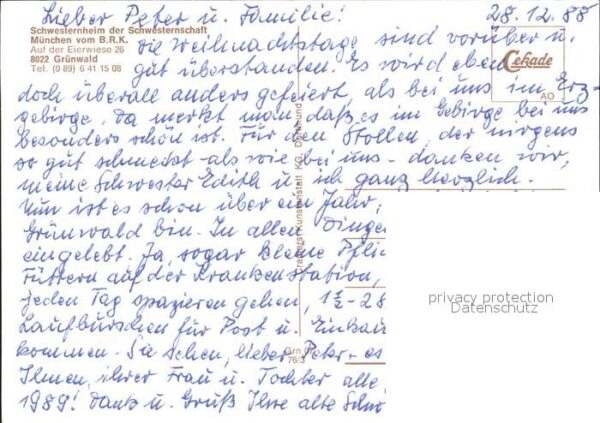 Lieber Peter u. Familie! 28.12.88
Schwesternheim der Schwesternschaft
München vom B.R.K.
Auf der Eierwiese 26
8022 Grünwald
Tel. (0 89) 6 41 15 08
Die Weihnachtstage sind vorüber u.
gut überstanden. Es wird eben
Cekade
AO
doch überall anders gefeiert, als bei uns im Erz-
gebirge. Da merkt man, daß es im Gebirge bei uns
besonders schön ist. Für den Stollen, der nirgens
so gut schmeckt - als wie bei uns - danken wir,
meine Schwester Edith u. ich ganz herzlich.
Nun ist es schon über ein Jahr,
Grünwald bin. In allen Dingen
eingelebt. Ja, sogar kleine Pfli
Füttern auf der Krankenstation,
jeden Tag spazieren gehen, 1½-2
Laufburschen für Post u. Einkäu
kommen. Sie sehen, lieber Peter, - es
Ihnen, ihrer Frau u. Tochter alle
1989! Dank u. Gruß Ihre alte Schw
Krapohl Kunstanstalt KG, Dortmund
Grn
76/3
privacy protection
Datenschutz